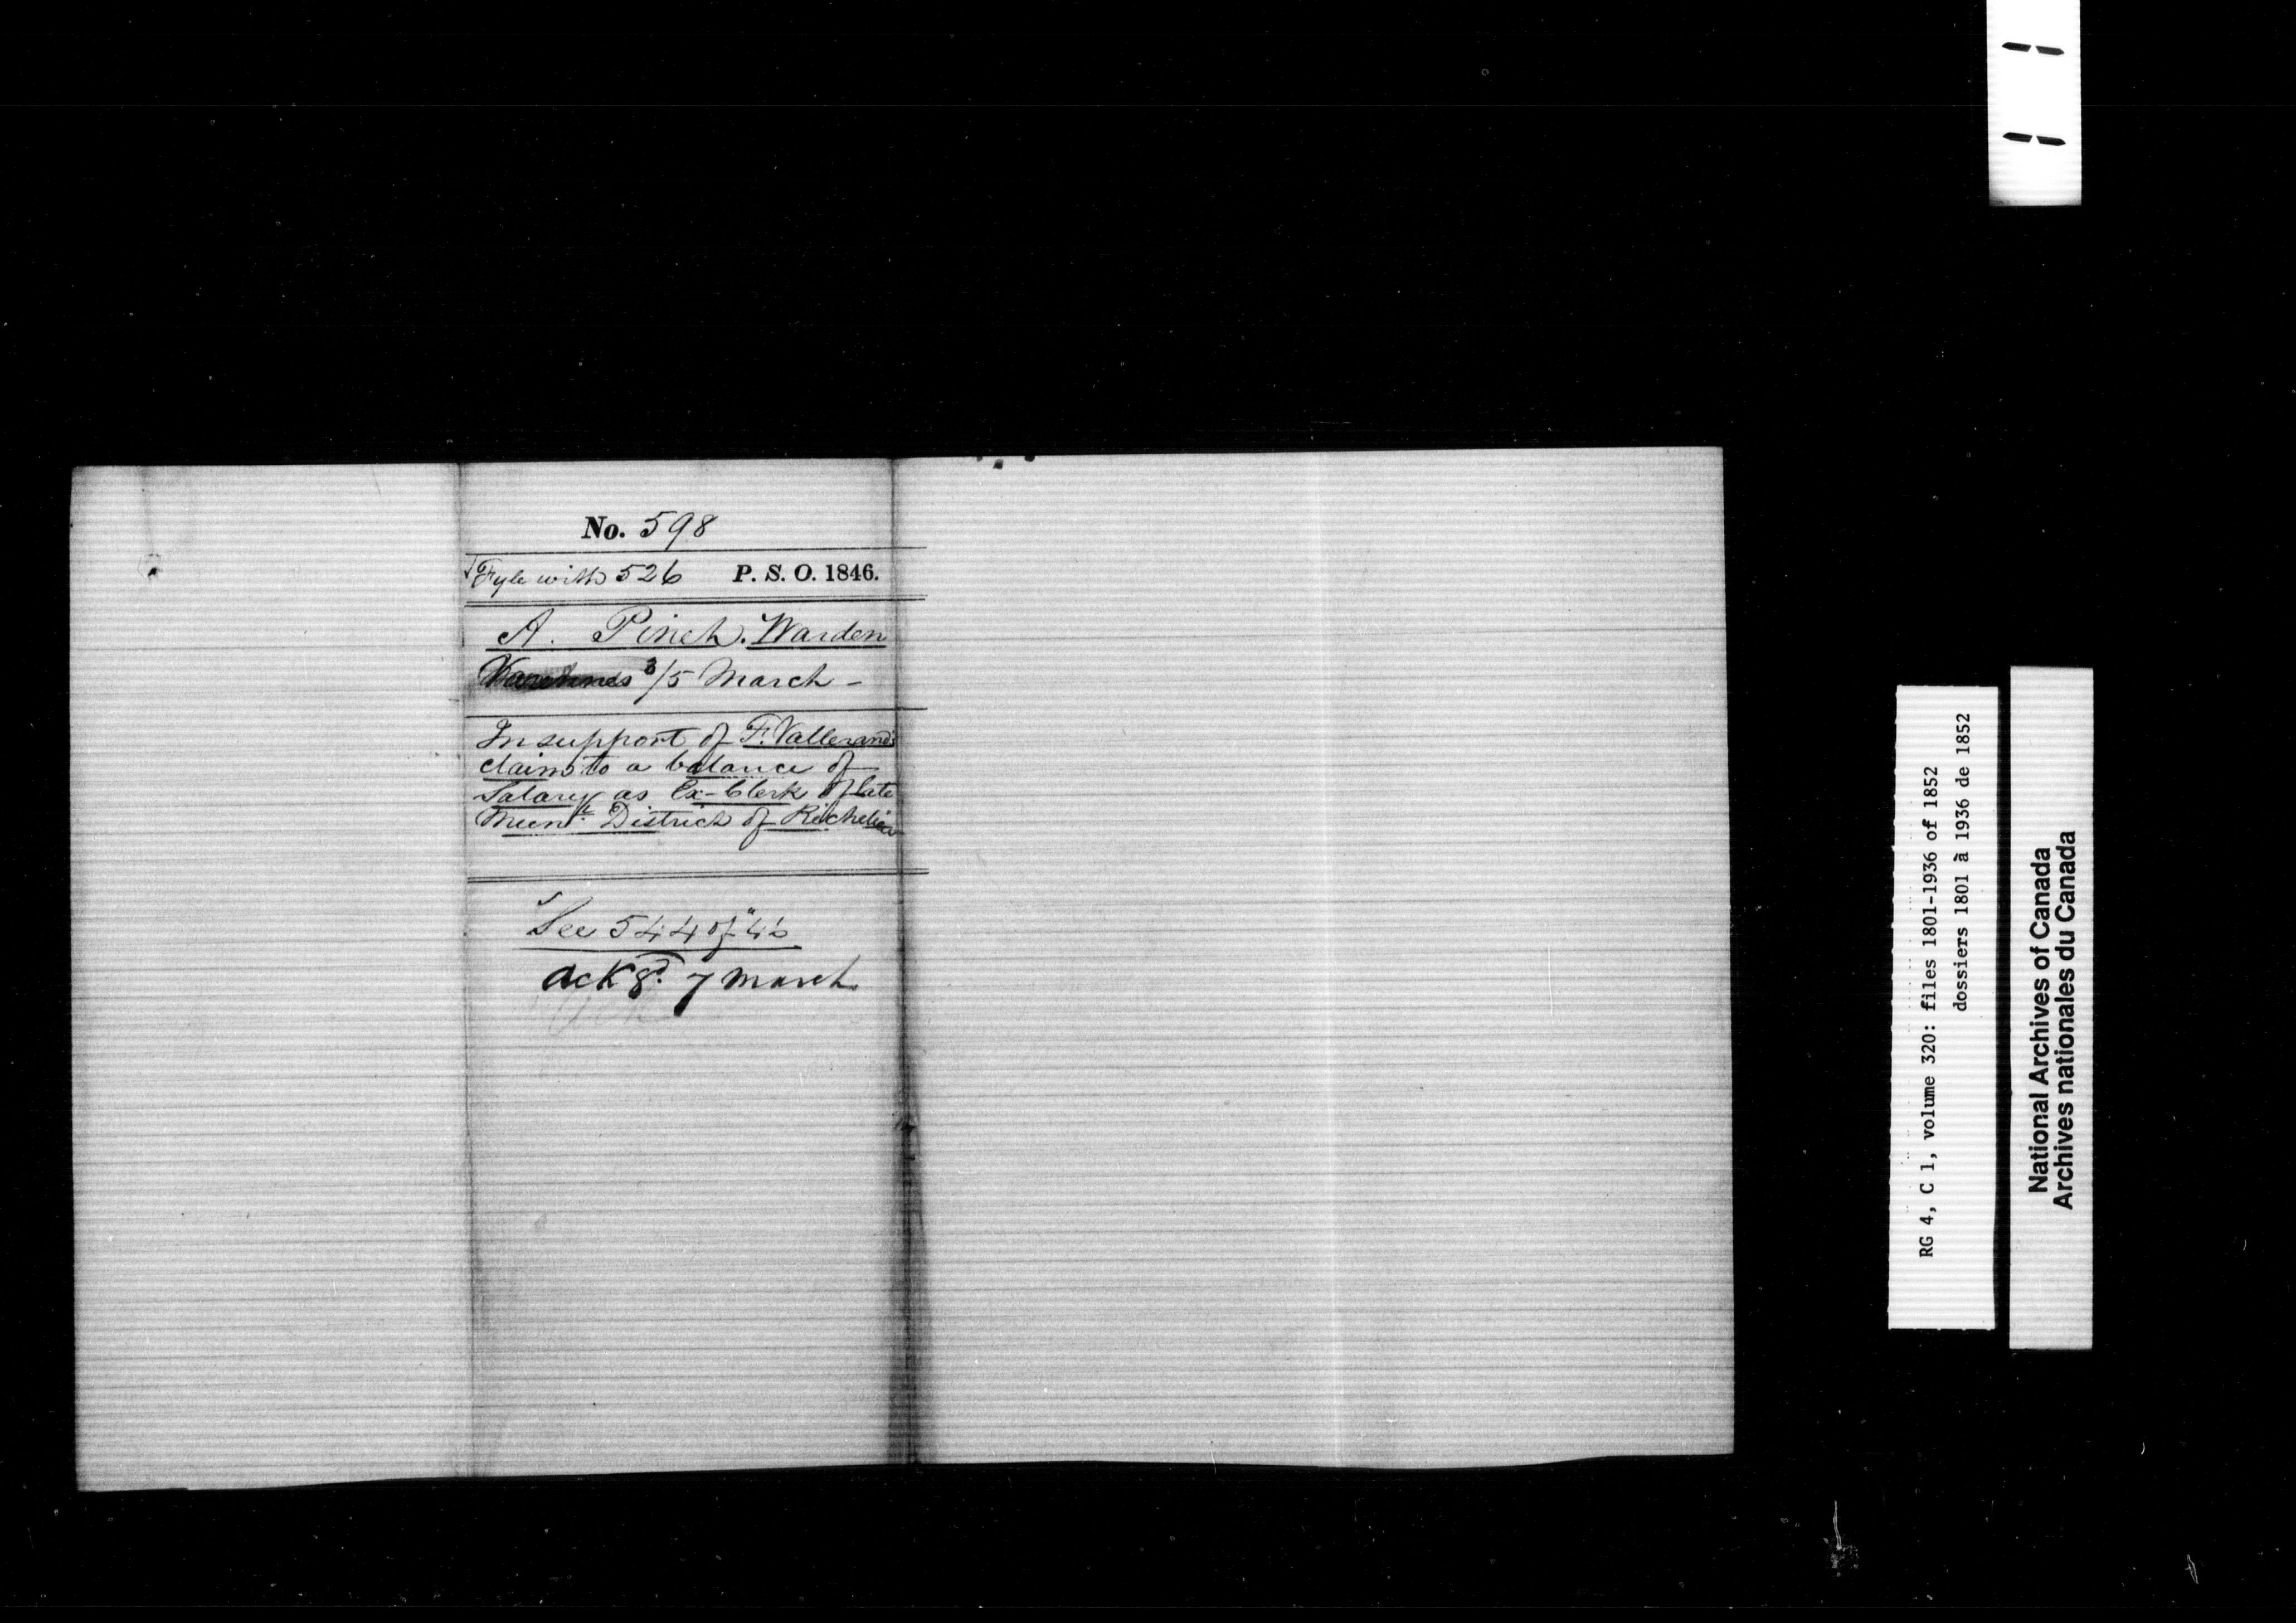 No. 598
Fyle with 526 P. S. O. 1846.
A. Pinet. Warden
Varennes 3/5 March -
In support of F. Vallerand's
claim to a balance of
Salary as Ex-Clerk of late
Munl. District of Richelieu
See 544 of "46
ackgd. 7 March
RG 4, C 1, volume 320: files 1801-1936 of 1852
dossiers 1801 à 1936 de 1852
National Archives of Canada
Archives nationales du Canada